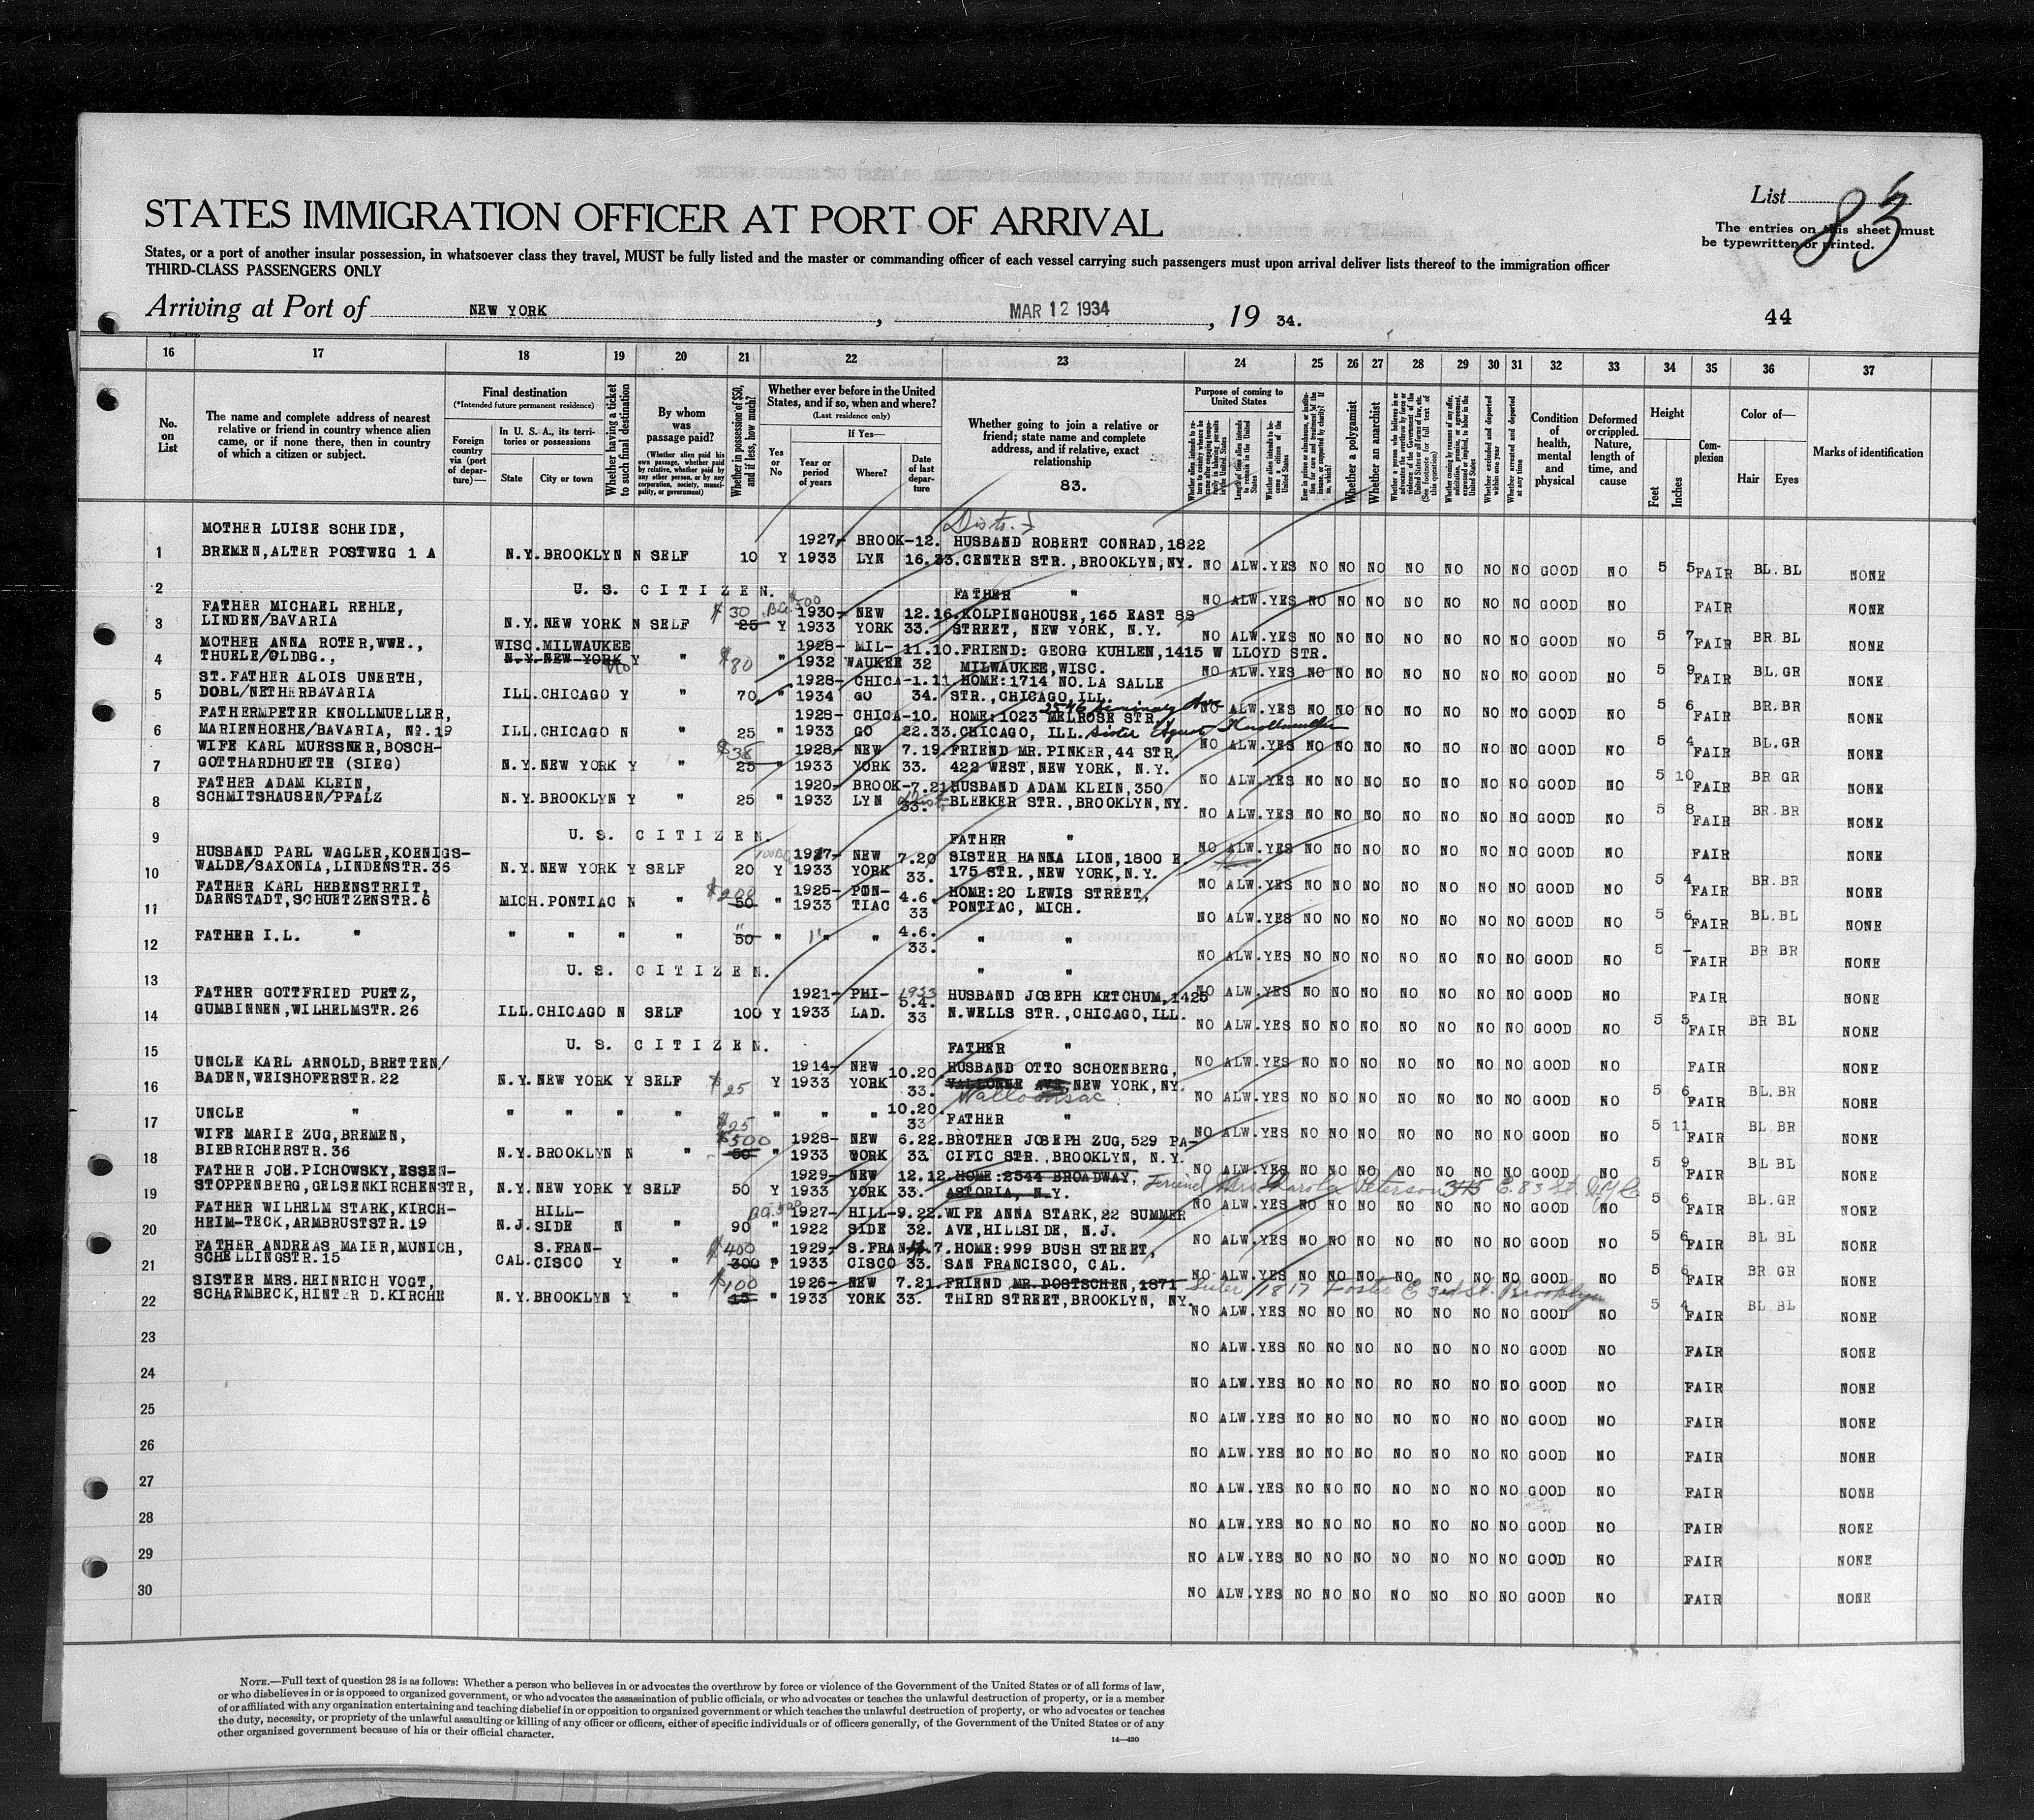 List 83
The entries on this sheet must
be typewritten or printed.
STATES IMMIGRATION OFFICER AT PORT OF ARRIVAL
States, or a port of another insular possession, in whatsoever class they travel, MUST be fully listed and the master or commanding officer of each vessel carrying such passengers must upon arrival deliver lists thereof to the immigration officer
THIRD-CLASS PASSENGERS ONLY
Arriving at Port of NEW YORK, MAR 12 1934, 19 34. 44
16 17 18 19 20 21 22 23 24 25 26 27 28 29 30 31 32 33 34 35 36 37
No. on List
The name and complete address of nearest
relative or friend in country whence alien
came, or if none there, then in country
of which a citizen or subject.
Final destination
(*Intended future permanent residence)
Foreign country via (port of departure)—
In U. S. A., its territories or possessions
State City or town
Whether having a ticket to such final destination
By whom was passage paid?
(Whether alien paid his own passage, whether paid by relative, whether paid by any other person, or by any corporation, society, municipality, or government)
Whether in possession of $50, and if less, how much?
Whether ever before in the United States, and if so, when and where?
(Last residence only)
Yes or No
If Yes—
Year or period of years
Where?
Date of last departure
Whether going to join a relative or
friend; state name and complete
address, and if relative, exact
relationship
83.
Purpose of coming to United States
Whether a polygamist
Whether an anarchist
Condition of health, mental and physical
Deformed or crippled. Nature, length of time, and cause
Height
Feet Inches
Complexion
Color of—
Hair Eyes
Marks of identification
MOTHER LUISE SCHEIDE,
1 BREMEN,ALTER POSTWEG 1 A N.Y. BROOKLYN N SELF 10 Y 1927- 1933 BROOK- LYN 12. 16.33. HUSBAND ROBERT CONRAD,1822 CENTER STR.,BROOKLYN,NY. NO ALW. YES NO NO NO NO NO NO NO GOOD NO 5 5 FAIR BL. BL NONE
2 U. S. CITIZEN. FATHER " NO ALW. YES NO NO NO NO NO NO NO GOOD NO FAIR NONE
FATHER MICHAEL REHLE,
3 LINDEN/BAVARIA N.Y. NEW YORK N SELF $30 25 B.G. $500 Y 1930- 1933 NEW YORK 12.16. 33. KOLPINGHOUSE,165 EAST 88 STREET, NEW YORK, N.Y. NO ALW. YES NO NO NO NO NO NO NO GOOD NO 5 7 FAIR BR. BL NONE
MOTHER ANNA ROTER,WWE.,
4 THUELE/OLDBG., WISC. MILWAUKEE N.Y. NEW YORK Y " $80 " 1928- 1932 MIL- WAUKEE 11.10. 32 FRIEND: GEORG KUHLEN,1415 W LLOYD STR. MILWAUKEE,WISC. NO ALW. YES NO NO NO NO NO NO NO GOOD NO 5 9 FAIR BL. GR NONE
ST.FATHER ALOIS UNERTH,
5 DOBL/NETHERBAVARIA ILL. CHICAGO Y " 70 " 1928- 1934 CHICA- GO 1.11. 34. HOME:1714 NO. LA SALLE STR., CHICAGO,ILL. NO ALW. YES NO NO NO NO NO NO NO GOOD NO 5 6 FAIR BR. BR NONE
FATHERMPETER KNOLLMUELLER,
6 MARIENHOEHE/BAVARIA, No.19 ILL. CHICAGO N " 25 " 1928- 1933 CHICA- GO 10. 22.33. HOME:1023 MELROSE STR. CHICAGO, ILL. Sister Knollmueller NO ALW. YES NO NO NO NO NO NO NO GOOD NO 5 4 FAIR BL. GR NONE
WIFE KARL MUESSNER,BOSCH-
7 GOTTHARDHUETTE (SIEG) N.Y. NEW YORK Y " $38 25 " 1928- 1933 NEW YORK 7.19. 33. FRIEND MR. PINKER,44 STR. 422 WEST,NEW YORK, N.Y. NO ALW. YES NO NO NO NO NO NO NO GOOD NO 5 10 FAIR BR GR NONE
FATHER ADAM KLEIN,
8 SCHMITSHAUSEN/PFALZ N.Y. BROOKLYN Y " 25 " 1920- 1933 BROOK- LYN 7.21. 33. HUSBAND ADAM KLEIN,350 BLEEKER STR.,BROOKLYN,NY. NO ALW. YES NO NO NO NO NO NO NO GOOD NO 5 8 FAIR BR. BR NONE
9 U. S. CITIZEN. FATHER " NO ALW. YES NO NO NO NO NO NO NO GOOD NO FAIR NONE
HUSBAND PARL WAGLER,KOENIGS-
10 WALDE/SAXONIA,LINDENSTR.36 N.Y. NEW YORK Y SELF 20 Y 1927- 1933 NEW YORK 7.20 33. SISTER HANNA LION,1800 E. 175 STR.,NEW YORK,N.Y. NO ALW. YES NO NO NO NO NO NO NO GOOD NO 5 4 FAIR BR. BR NONE
FATHER KARL HEBENSTREIT,
11 DARNSTADT,SCHUETZENSTR.6 MICH. PONTIAC N " $200 50 " 1925- 1933 PON- TIAC 4.6. 33 HOME:20 LEWIS STREET, PONTIAC, MICH. NO ALW. YES NO NO NO NO NO NO NO GOOD NO 5 6 FAIR BL. BL NONE
12 FATHER I.L. " " " " " 50 " " " 4.6. 33. " " NO ALW. YES NO NO NO NO NO NO NO GOOD NO 5 - FAIR BR BR NONE
13 U. S. CITIZEN. " " NO ALW. YES NO NO NO NO NO NO NO GOOD NO FAIR NONE
FATHER GOTTFRIED PUETZ,
14 GUMBINNEN,WILHELMSTR.26 ILL. CHICAGO N SELF 100 Y 1921- 1933 PHI- LAD. 1933 5.4. 33 HUSBAND JOSEPH KETCHUM,1425 N. WELLS STR.,CHICAGO,ILL. NO ALW. YES NO NO NO NO NO NO NO GOOD NO 5 5 FAIR BR BL NONE
15 U. S. CITIZEN. FATHER " NO ALW. YES NO NO NO NO NO NO NO GOOD NO FAIR NONE
UNCLE KARL ARNOLD,BRETTEN/
16 BADEN,WEISHOFERSTR.22 N.Y. NEW YORK Y SELF $25 Y 1914- 1933 NEW YORK 10.20. 33. HUSBAND OTTO SCHOENBERG, VALLONNE AVE,NEW YORK,NY. NO ALW. YES NO NO NO NO NO NO NO GOOD NO 5 6 FAIR BL. BR NONE
17 UNCLE " " " " " $25 " " " 10.20. 33 FATHER " NO ALW. YES NO NO NO NO NO NO NO GOOD NO 5 11 FAIR BL BR NONE
WIFE MARIE ZUG,BREMEN,
18 BIEBRICHERSTR.36 N.Y. BROOKLYN N " $500 50 " 1928- 1933 NEW YORK 6.22. 33. BROTHER JOSEPH ZUG,529 PA- CIFIC STR., BROOKLYN, N.Y. NO ALW. YES NO NO NO NO NO NO NO GOOD NO 5 9 FAIR BL BL NONE
FATHER JOH.PICHOWSKY,ESSEN-
19 STOPPENBERG,GELSENKIRCHENSTR, N.Y. NEW YORK Y SELF 50 Y 1929- 1933 NEW YORK 12.12. 33. HOME:2544 BROADWAY, ASTORIA, N.Y. Friend Peterson E. 83 St. NO ALW. YES NO NO NO NO NO NO NO GOOD NO 5 6 FAIR BL. GR NONE
FATHER WILHELM STARK,KIRCH-
20 HEIM-TECK,ARMBRUSTSTR.19 N.J. HILL- SIDE N " 90 B.G. 500 " 1927- 1922 HILL- SIDE 9.22. 32. WIFE ANNA STARK,22 SUMMER AVE,HILLSIDE, N.J. NO ALW. YES NO NO NO NO NO NO NO GOOD NO 5 6 FAIR BL BL NONE
FATHER ANDREAS MAIER,MUNICH,
21 SCHELLINGSTR.15 CAL. S.FRAN- CISCO Y " $400 300 " 1929- 1933 S.FRAN- CISCO 7. 33. HOME:999 BUSH STREET, SAN FRANCISCO, CAL. NO ALW. YES NO NO NO NO NO NO NO GOOD NO 5 6 FAIR BR GR NONE
SISTER MRS.HEINRICH VOGT,
22 SCHARMBECK,HINTER D.KIRCHE N.Y. BROOKLYN Y " $100 15 " 1926- 1933 NEW YORK 7.21. 33. FRIEND MR. DOSTSCHEN, 1871 THIRD STREET,BROOKLYN, NY. Sister 1817 E 3rd St. Brooklyn NO ALW. YES NO NO NO NO NO NO NO GOOD NO 5 4 FAIR BL. BL NONE
23 NO ALW. YES NO NO NO NO NO NO NO GOOD NO FAIR NONE
24 NO ALW. YES NO NO NO NO NO NO NO GOOD NO FAIR NONE
25 NO ALW. YES NO NO NO NO NO NO NO GOOD NO FAIR NONE
26 NO ALW. YES NO NO NO NO NO NO NO GOOD NO FAIR NONE
27 NO ALW. YES NO NO NO NO NO NO NO GOOD NO FAIR NONE
28 NO ALW. YES NO NO NO NO NO NO NO GOOD NO FAIR NONE
29 NO ALW. YES NO NO NO NO NO NO NO GOOD NO FAIR NONE
30 NO ALW. YES NO NO NO NO NO NO NO GOOD NO FAIR NONE
NOTE.—Full text of question 28 is as follows: Whether a person who believes in or advocates the overthrow by force or violence of the Government of the United States or of all forms of law,
or who disbelieves in or is opposed to organized government, or who advocates the assassination of public officials, or who advocates or teaches the unlawful destruction of property, or is a member
of or affiliated with any organization entertaining and teaching disbelief in or opposition to organized government or which teaches the unlawful destruction of property, or who advocates or teaches
the duty, necessity, or propriety of the unlawful assaulting or killing of any officer or officers, either of specific individuals or of officers generally, of the Government of the United States or of any
other organized government because of his or their official character.
14—430